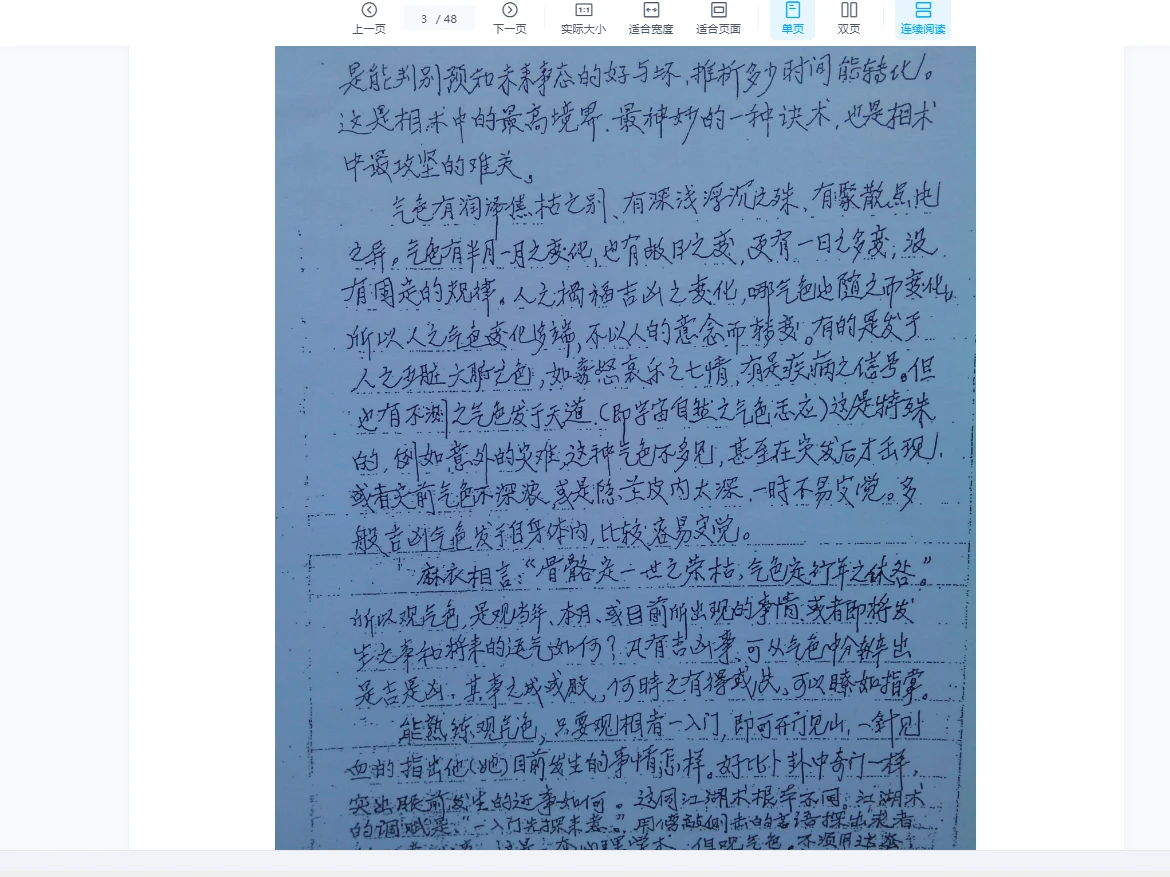 上一页
3 / 48
下一页
1:1
实际大小
适合宽度
适合页面
单页
双页
连续阅读
是能判别预知未来事态的好与坏,推析多少时间能转化。
这是相术中的最高境界.最神妙的一种诀术,也是相术
中最攻坚的难关。
气色有润泽焦枯之别、有深浅浮沉之殊、有聚散点
之异。气色有半月一月之变化,也有敝日之变,更有一日之多变,没
有固定的规律。人之祸福吉凶之变化,哪气色也随之而变化。
所以人之气色变化多端,不以人的意念而转变。有的是发于
人之五脏六腑之色,如喜怒哀乐之七情,有是疾病之信号。但
也有不测之气色发于天道.(即宇宙自然之气色感应)这是特殊
的,例如意外的灾难,这种气色不多见,甚至在灾发后才出现,
或者灾前气色不深浓,或是隐在皮内太深,一时不易察觉。多
般吉凶气色发于自身体内,比较容易察觉。
麻衣相言:“骨骼定一世之荣枯,气色定行年之休咎。”
所以观气色,是观当年、本月、或目前所出现的事情,或者即将发
生之事和将来的运气如何?凡有吉凶事、可从气色中分辨出
是吉是凶.其事之成或败,何時之有得或失,可以瞭如指掌。
能熟练观气色,只要观相者一入门,即可开门见山,一針见
血的指出他(她)目前发生的事情怎样。好比卜卦中奇门一样,
突出眼前发生的近事如何。这同江湖术根本不同。江湖术
的是:“一入门先探来意。”用旁敲侧击的言语探出求者
但观气色.不须用这